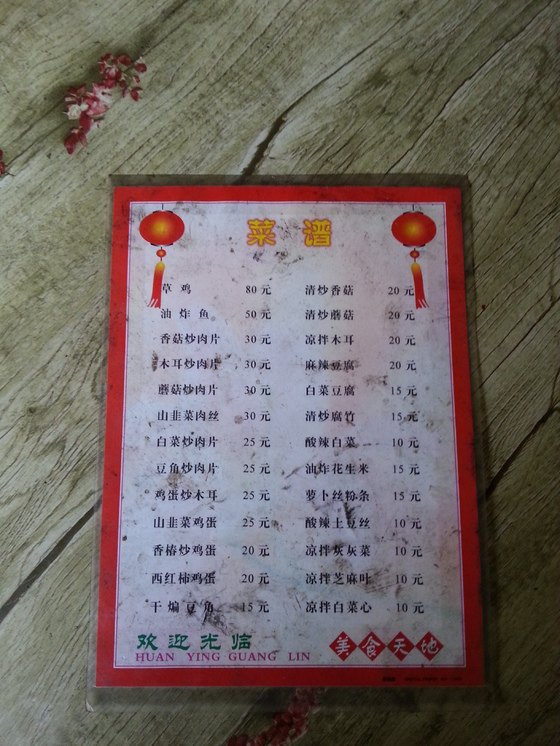 菜谱
草鸡 80元
油炸鱼 50元
香菇炒肉片 30元
木耳炒肉片 30元
蘑菇炒肉片 30元
山韭菜肉丝 30元
白菜炒肉片 25元
豆角炒肉片 25元
鸡蛋炒木耳 25元
山韭菜鸡蛋 25元
香椿炒鸡蛋 20元
西红柿鸡蛋 20元
干煸豆角 15元
清炒香菇 20元
清炒蘑菇 20元
凉拌木耳 20元
麻辣豆腐 20元
白菜豆腐 15元
清炒腐竹 15元
酸辣白菜 10元
油炸花生米 15元
萝卜丝粉条 15元
酸辣土豆丝 10元
凉拌灰灰菜 10元
凉拌芝麻叶 10元
凉拌白菜心 10元
欢迎光临
HUAN YING GUANG LIN
美食天地